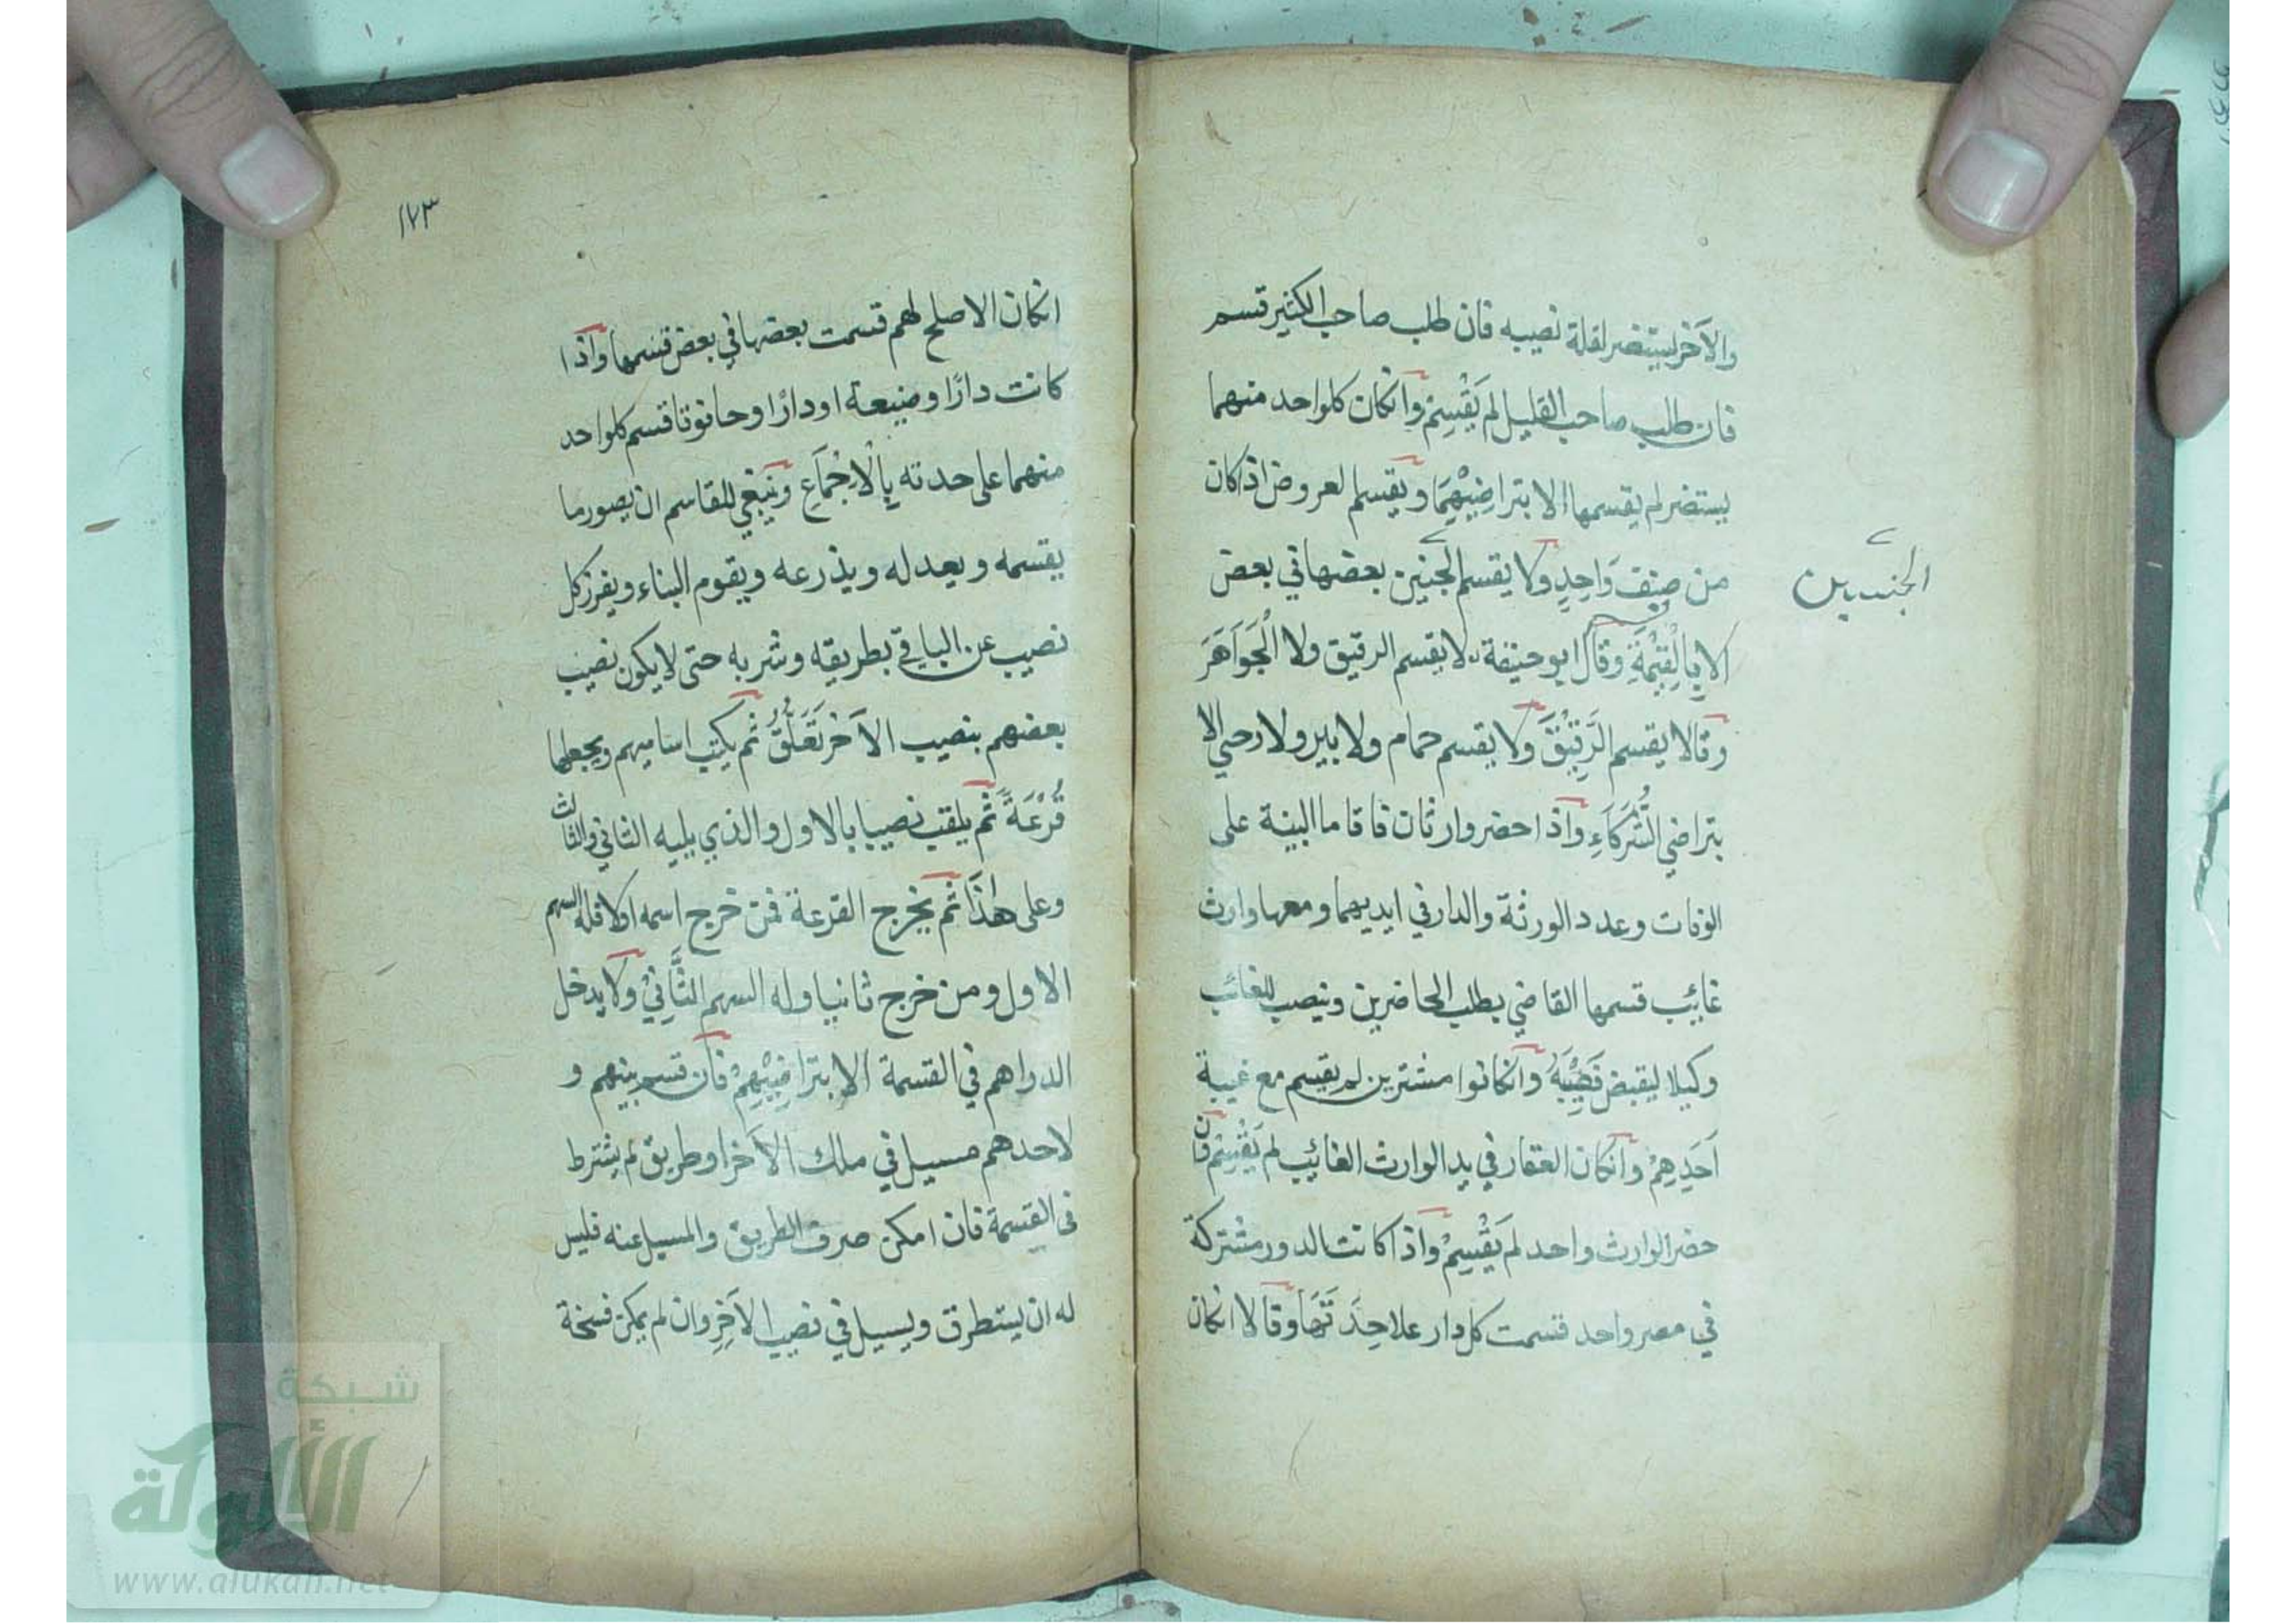 والآخر يستضر لقلة نصيبه فان طلب صاحب الكثير قسم
فان طلب صاحب القليل لم يَقْسِمْ وانكان كلواحد منهما
يستضر لم يقسمها الا بتراضِيْهِمَا ويقسم لعروض اذا كان
من صِنفٍ وَاحِدٍ ولا يقسم الجنين بعضها في بعض
الجنسين
الا بِالْقِيْمَةِ وقال ابو حنيفة لا يقسم الرقيق ولا الْجَوَاهَرَ
وقالا يقسم الرَّقِيْقَ ولا يقسم حمام ولا بير ولا رحى الا
بتراضي الشُّرَكَاءِ واذا حضر وارثان فاقاما البينة على
الوفات وعدد الورثة والدار في ايديهما ومعها وارث
غائب قسمها القاضي بطلب الحاضرين وينصب للغائب
وكيلا ليقبض نَصِيْبَهُ وانكانوا مشترين لم يقسم مع غيبة
اَحَدِهِمْ وانكان العقار في يد الوارث الغائب لم يَقْسِمْ فان
حضر الوارث واحد لم يَقْسِمْ واذا كانت الدور مشتركة
في مصر واحد قسمت كل دار علاحِدَتَهَا وقالا انكان
١٧٣
انكان الاصلح لهم قسمت بعضها في بعض قسمها واذا
كانت دارًا وضيعة او دارًا وحانوتا قسم كلواحد
منهما على حدته بِالْاِجْمَاعِ وينبغي للقاسم ان يصور ما
يقسمه ويعدله ويذرعه ويقوم البناء ويفرز كل
نصيب عن الباقي بطريقه وشربه حتى لا يكون نصيب
بعضهم بنصيب الآخر تَعَلُّقٌ ثم يكتب اساميهم ويجعلها
قُرْعَةً ثم يلقب نصيبا بالاول والذي يليه الثاني والثالث
وعلى هٰذَا ثم يخرج القرعة فمن خرج اسمه اولا فله السهم
الاول ومن خرج ثانيا وله السهم الثَّانِيْ ولا يدخل
الدراهم في القسمة الا بتراضِيْهِمْ فان قسم بينهم و
لاحدهم مسيل في ملك الآخر او طريق لم يشترط
فى القسمة فان امكن صرف الطريق والمسيل عنه فليس
له ان يستطرق ويسيل في نصيب الآخِرِ وان لم يمكن فسخة
شبكة
الألوكة
www.alukah.net